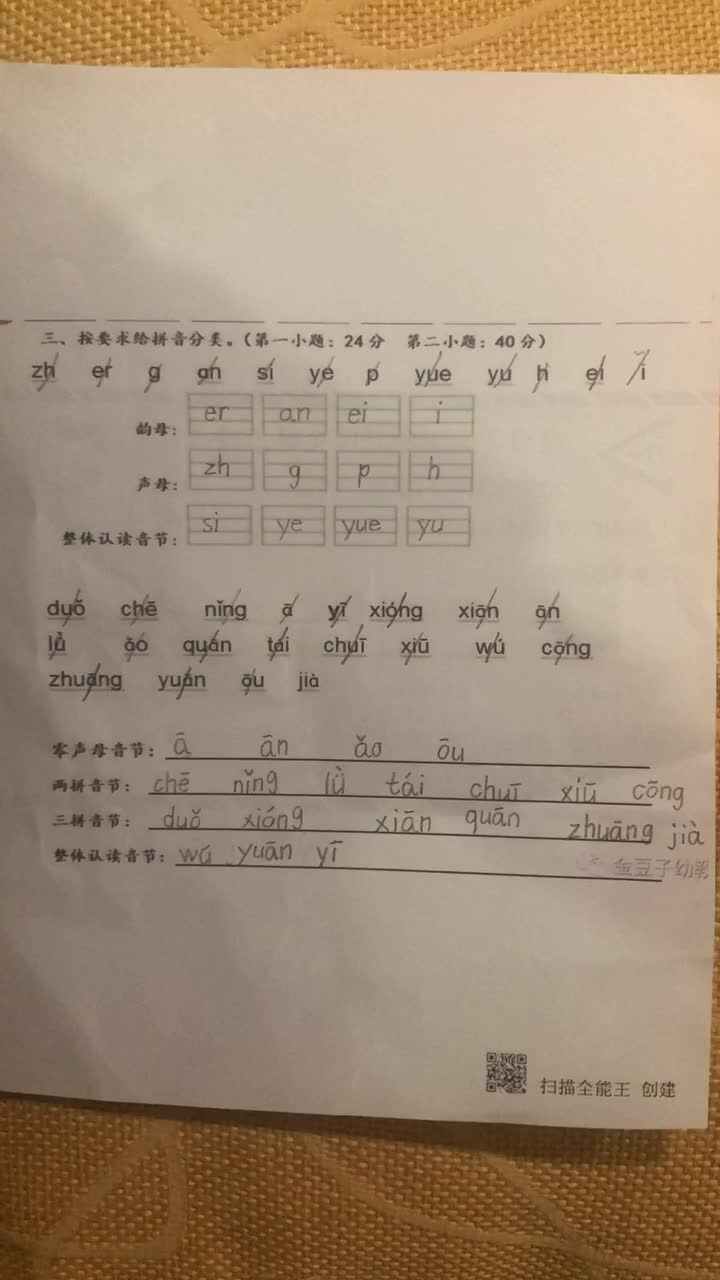 三、按要求给拼音分类。(第一小题：24分 第二小题：40分)
zh er g an si ye p yue yu h ei i
韵母： er an ei i
声母： zh g p h
整体认读音节： si ye yue yu
duǒ chē nǐng ā yī xióng xiān ān
lǜ ǎo quán tái chuī xiū wú cōng
zhuāng yuán ōu jià
零声母音节： ā ān ǎo ōu
两拼音节： chē nǐng lǜ tái chuī xiū cōng
三拼音节： duǒ xióng xiān quān zhuāng jià
整体认读音节： wú yuān yī
金豆子幼
扫描全能王 创建